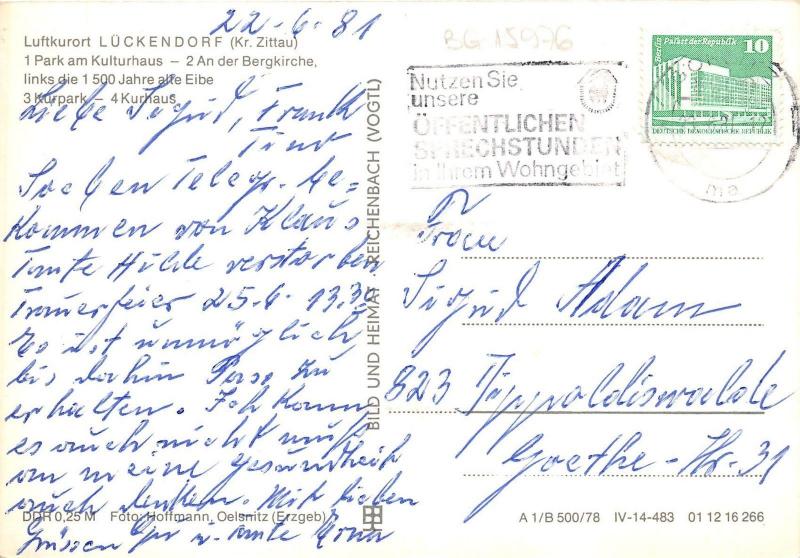 22-6-81
BG 15976
Luftkurort LÜCKENDORF (Kr. Zittau)
1 Park am Kulturhaus – 2 An der Bergkirche,
links die 1500 Jahre alte Eibe
3 Kurpark – 4 Kurhaus
Liebe Sigrid, Frank
Soeben Telegr. be-
kommen von Klaus
Tante Hilde verstorben
Trauerfeier 25-6-13.30
Es ist unmöglich
bis dahin Pass zu
erhalten. Ich kann
es auch nicht muß
an meine Gesundheit
auch denken. Mit lieben
Grüssen
DDR 0,25 M Foto: Hoffmann, Oelsnitz (Erzgeb)
BILD UND HEIMAT REICHENBACH (VOGTL)
Nutzen Sie
unsere
ÖFFENTLICHEN
SPRECHSTUNDEN
in Ihrem Wohngebiet
Berlin Palast der Republik
10
DEUTSCHE DEMOKRATISCHE REPUBLIK
Frau
Sigrid Adam
823 Dippoldiswalde
Goethe-Str. 31
A 1/B 500/78 IV-14-483 01 12 16 266